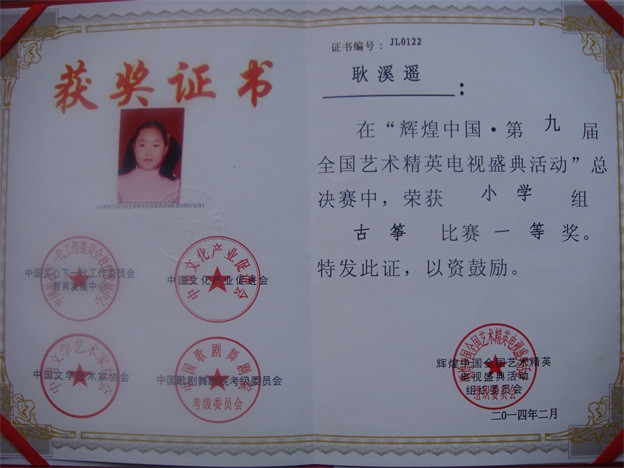 获奖证书
中国关心下一代工作委员会
教育发展中心
中国文化产业促进会
中国文学艺术家协会
中国歌剧舞剧院考级委员会
中国文化产业促进会
考级委员会
证书编号：JL0122
耿溪遥：
在“辉煌中国·第九届
全国艺术精英电视盛典活动”总
决赛中，荣获小学组
古筝比赛一等奖。
特发此证，以资鼓励。
辉煌中国全国艺术精英
电视盛典活动
组织委员会
组织委员会
二〇一四年二月